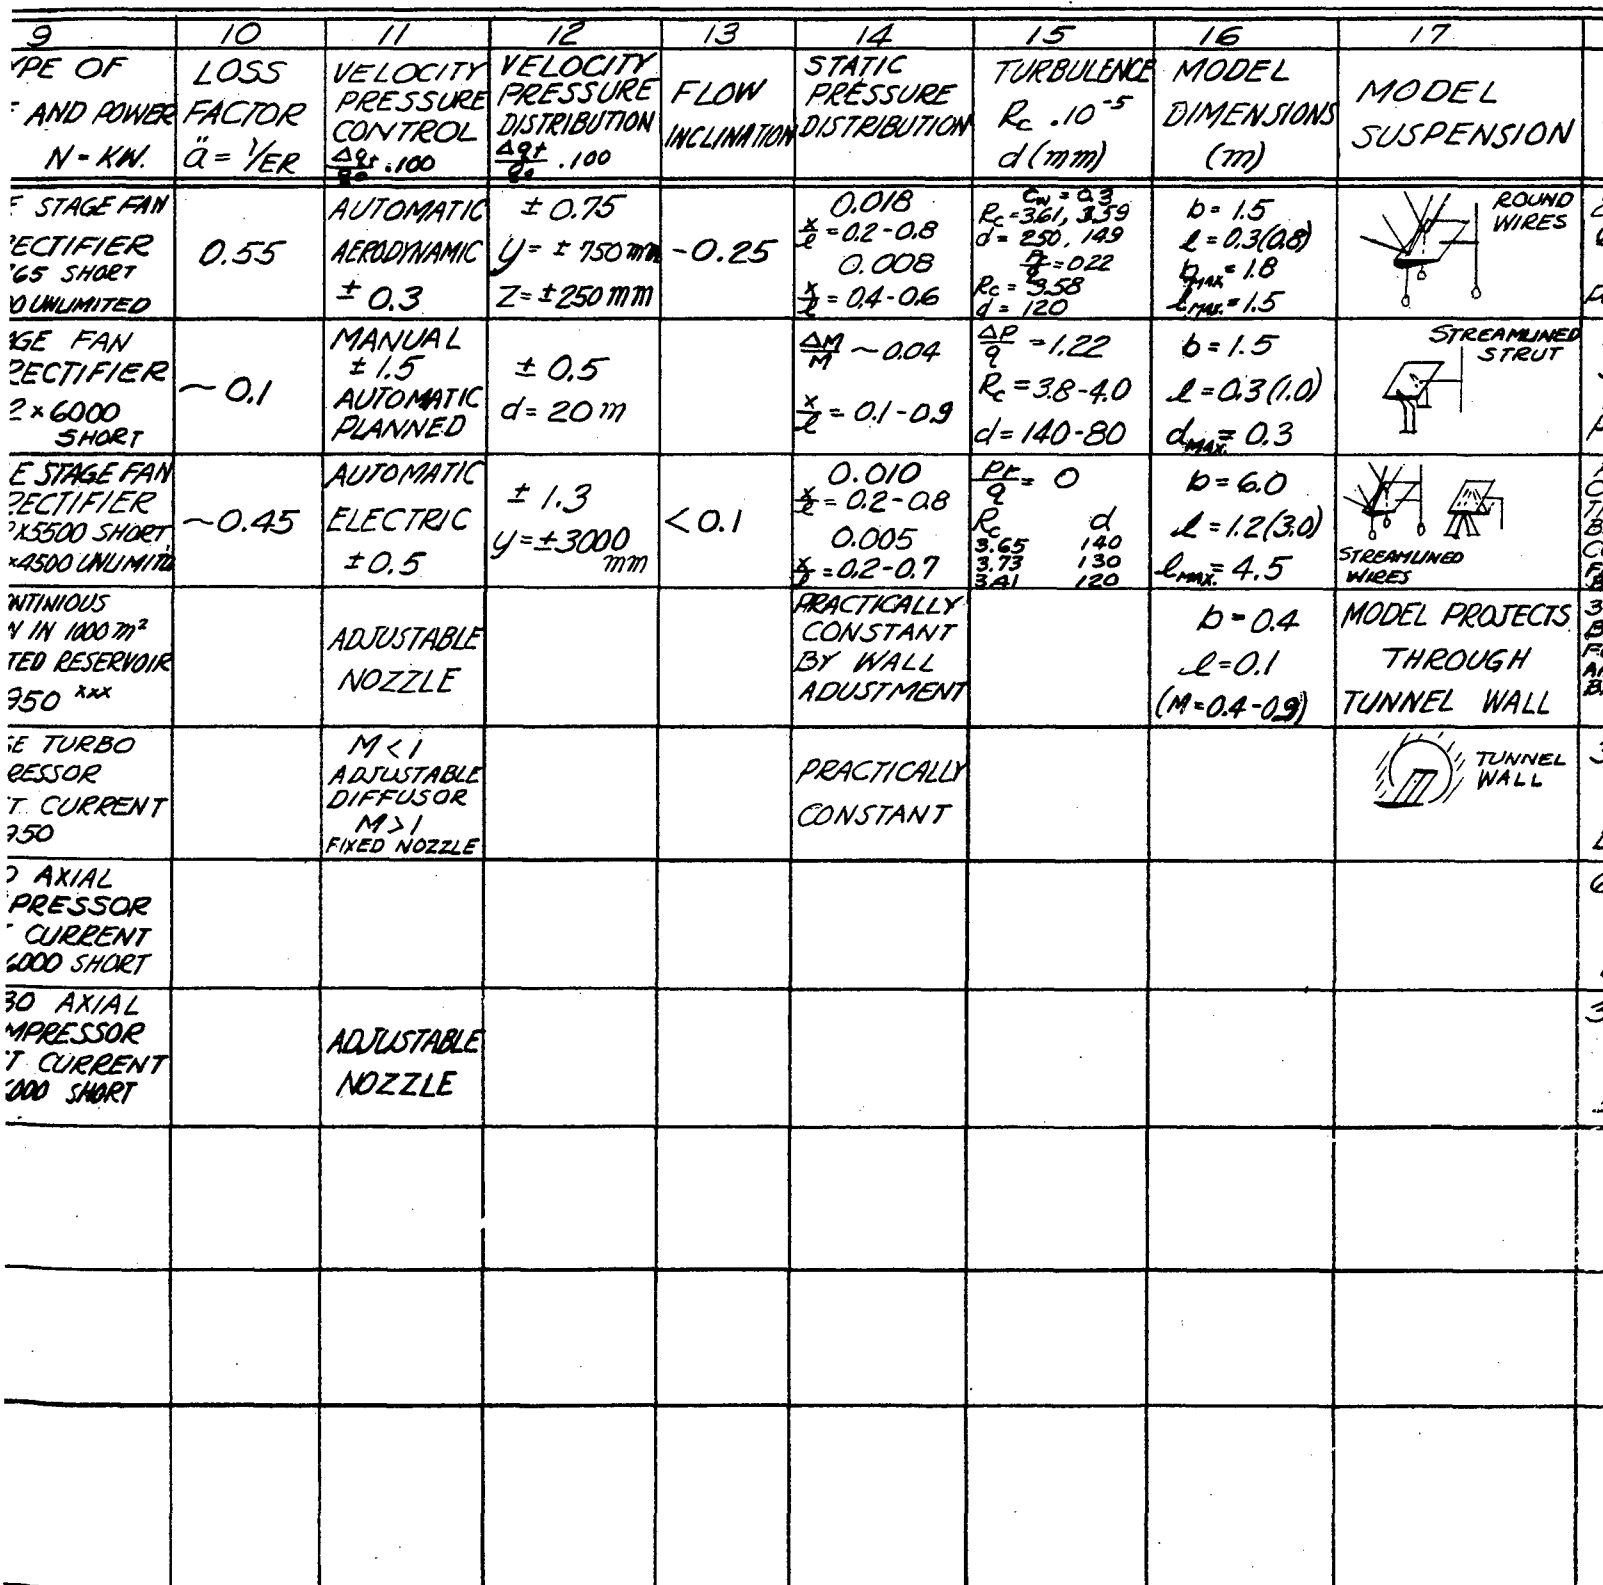 9 10 11 12 13 14 15 16 17
YPE OF
AND POWER
N = KW.
LOSS
FACTOR
ä = 1/ER
VELOCITY
PRESSURE
CONTROL
Δqt/q₀ .100
VELOCITY
PRESSURE
DISTRIBUTION
Δqt/q₀ .100
FLOW
INCLINATION
STATIC
PRESSURE
DISTRIBUTION
TURBULENCE
Rc .10⁻⁵
d (mm)
MODEL
DIMENSIONS
(m)
MODEL
SUSPENSION
STAGE FAN
ECTIFIER
65 SHORT
0 UNLIMITED
0.55
AUTOMATIC
AERODYNAMIC
± 0.3
± 0.75
y = ± 750 mm
Z = ± 250 mm
-0.25
0.018
x/l = 0.2-0.8
0.008
x/l = 0.4-0.6
Cw = 0.3
Rc = 3.61, 3.59
d = 250, 149
= 022
Rc = 3.58
d = 120
b = 1.5
l = 0.3(0.8)
bMAX = 1.8
lMAX. = 1.5
ROUND
WIRES
GE FAN
RECTIFIER
2 x 6000
SHORT
~ 0.1
MANUAL
± 1.5
AUTOMATIC
PLANNED
± 0.5
d = 20 m
ΔM/M ~ 0.04
x/l = 0.1-0.9
ΔP/q = 1.22
Rc = 3.8-4.0
d = 140-80
b = 1.5
l = 0.3 (1.0)
dMAX. = 0.3
STREAMLINED
STRUT
E STAGE FAN
RECTIFIER
X5500 SHORT
x4500 UNLIMITD
~0.45
AUTOMATIC
ELECTRIC
± 0.5
± 1.3
y = ± 3000
mm
< 0.1
0.010
x/l = 0.2-0.8
0.005
x/l = 0.2-0.7
Pr/q = 0
Rc d
3.65 140
3.73 130
3.41 120
b = 6.0
l = 1.2(3.0)
lMAX. = 4.5
STREAMLINED
WIRES
NTINIOUS
N IN 1000 m²
TED RESERVOIR
950 xxx
ADJUSTABLE
NOZZLE
PRACTICALLY
CONSTANT
BY WALL
ADUSTMENT
b = 0.4
l = 0.1
(M = 0.4-0.9)
MODEL PROJECTS
THROUGH
TUNNEL WALL
GE TURBO
RESSOR
T. CURRENT
950
M < 1
ADJUSTABLE
DIFFUSOR
M > 1
FIXED NOZZLE
PRACTICALLY
CONSTANT
TUNNEL
WALL
O AXIAL
PRESSOR
CURRENT
6000 SHORT
BO AXIAL
MPRESSOR
T CURRENT
000 SHORT
ADJUSTABLE
NOZZLE